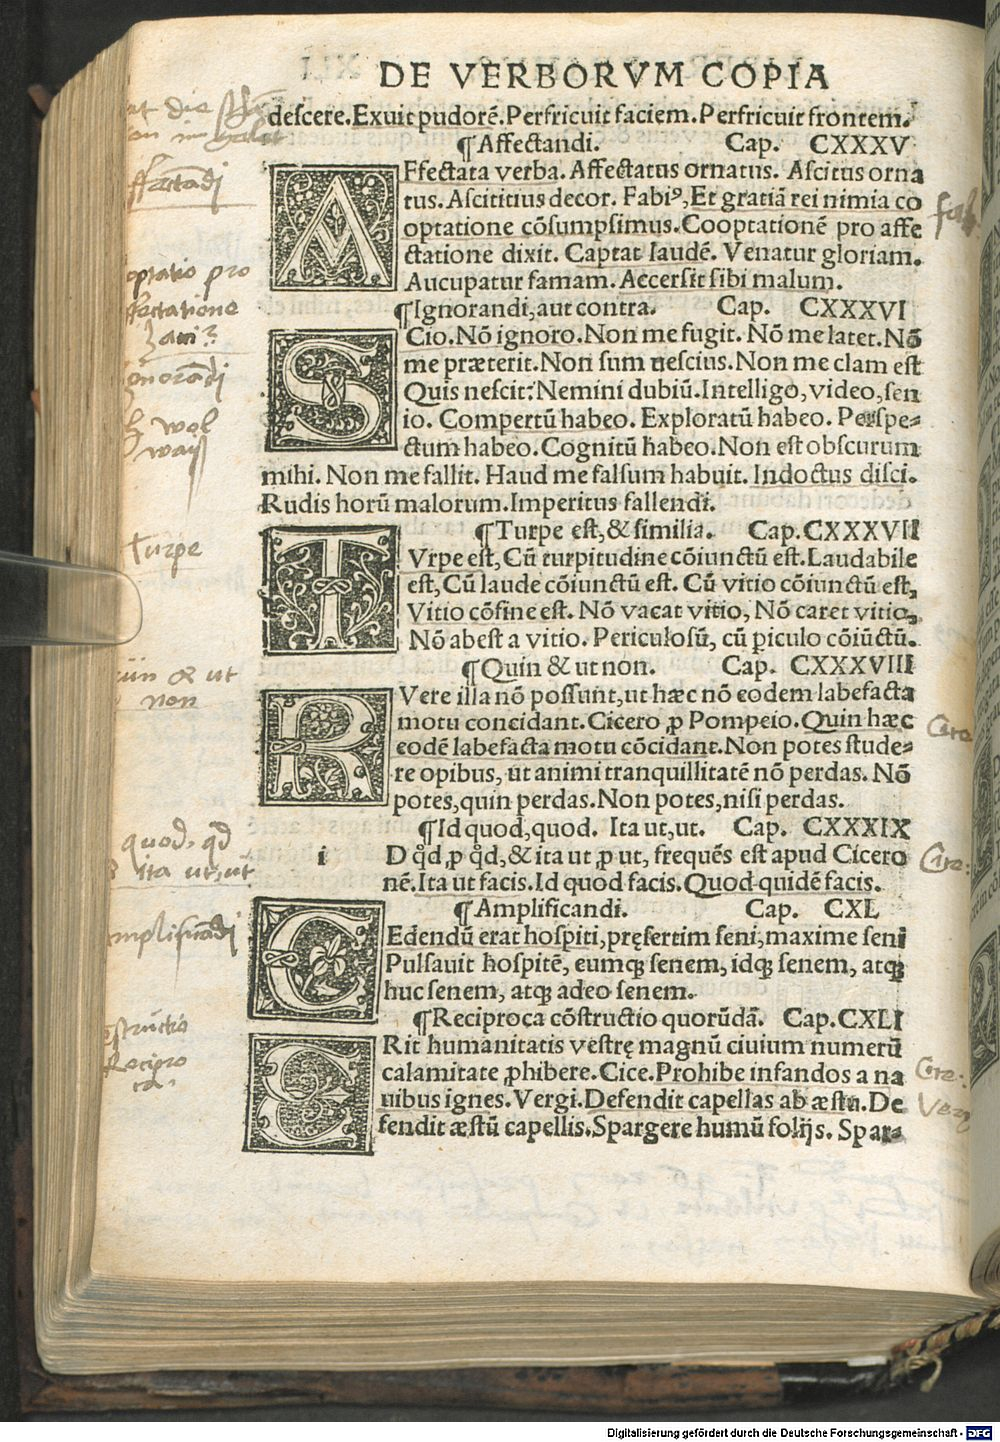 DE VERBORVM COPIA
descere. Exuit pudorē. Perfricuit faciem. Perfricuit frontem.
¶Affectandi. Cap. CXXXV
AFfectata verba. Affectatus ornatus. Ascitus orna
tus. Ascititius decor. Fabiꝰ, Et gratiā rei nimia co
optatione cōsumpsimus. Cooptationē pro affe
ctatione dixit. Captat laudē. Venatur gloriam.
Aucupatur famam. Accersit sibi malum.
¶Ignorandi, aut contra. Cap. CXXXVI
SCio. Nō ignoro. Non me fugit. Nō me latet. Nō
me præterit. Non sum nescius. Non me clam est
Quis nescit: Nemini dubiū. Intelligo, video, sen
io. Compertū habeo. Exploratū habeo. Perspe-
ctum habeo. Cognitū habeo. Non est obscurum
mihi. Non me fallit. Haud me falsum habuit. Indoctus disci.
Rudis horū malorum. Imperitus fallendi.
¶Turpe est, & similia. Cap. CXXXVII
TVrpe est, Cū turpitudine cōiunctū est. Laudabile
est, Cū laude cōiunctū est. Cū vitio cōiunctū est,
Vitio cōfine est. Nō vacat vitio, Nō caret vitio,
Nō abest a vitio. Periculosū, cū ꝑiculo cōiūctū.
¶Quin & ut non. Cap. CXXXVIII
RVere illa nō possunt, ut hæc nō eodem labefacta
motu concidant. Cicero ꝓ Pompeio. Quin hæc
eodē labefacta motu cōcidant. Non potes stude-
re opibus, ut animi tranquillitatē nō perdas. Nō
potes, quin perdas. Non potes, nisi perdas.
¶Id quod, quod. Ita ut, ut. Cap. CXXXIX
i D qd̄, ꝓ qd̄, & ita ut ꝓ ut, frequēs est apud Cicero
nē. Ita ut facis. Id quod facis. Quod quidē facis.
¶Amplificandi. Cap. CXL
CEdendū erat hospiti, pręsertim seni, maxime seni
Pulsauit hospitē, eumqꝫ senem, idqꝫ senem, atqꝫ
huc senem, atqꝫ adeo senem.
¶Reciproca cōstructio quorūdā. Cap. CXLI
ERit humanitatis vestrę magnū ciuium numerū
calamitate ꝓhibere. Cice. Prohibe infandos a na
uibus ignes. Vergi. Defendit capellas ab æstu. De
fendit æstū capellis. Spargere humū folijs. Spar-
ffectādi
Fab.
optatio pro
ffectatione
Turpe
quin & ut
non
Cice
quod, qd
ita ut, ut
Cice:
mplificādi
Recipro
ca.
Cice:
Verg
Digitalisierung gefördert durch die Deutsche Forschungsgemeinschaft - DFG